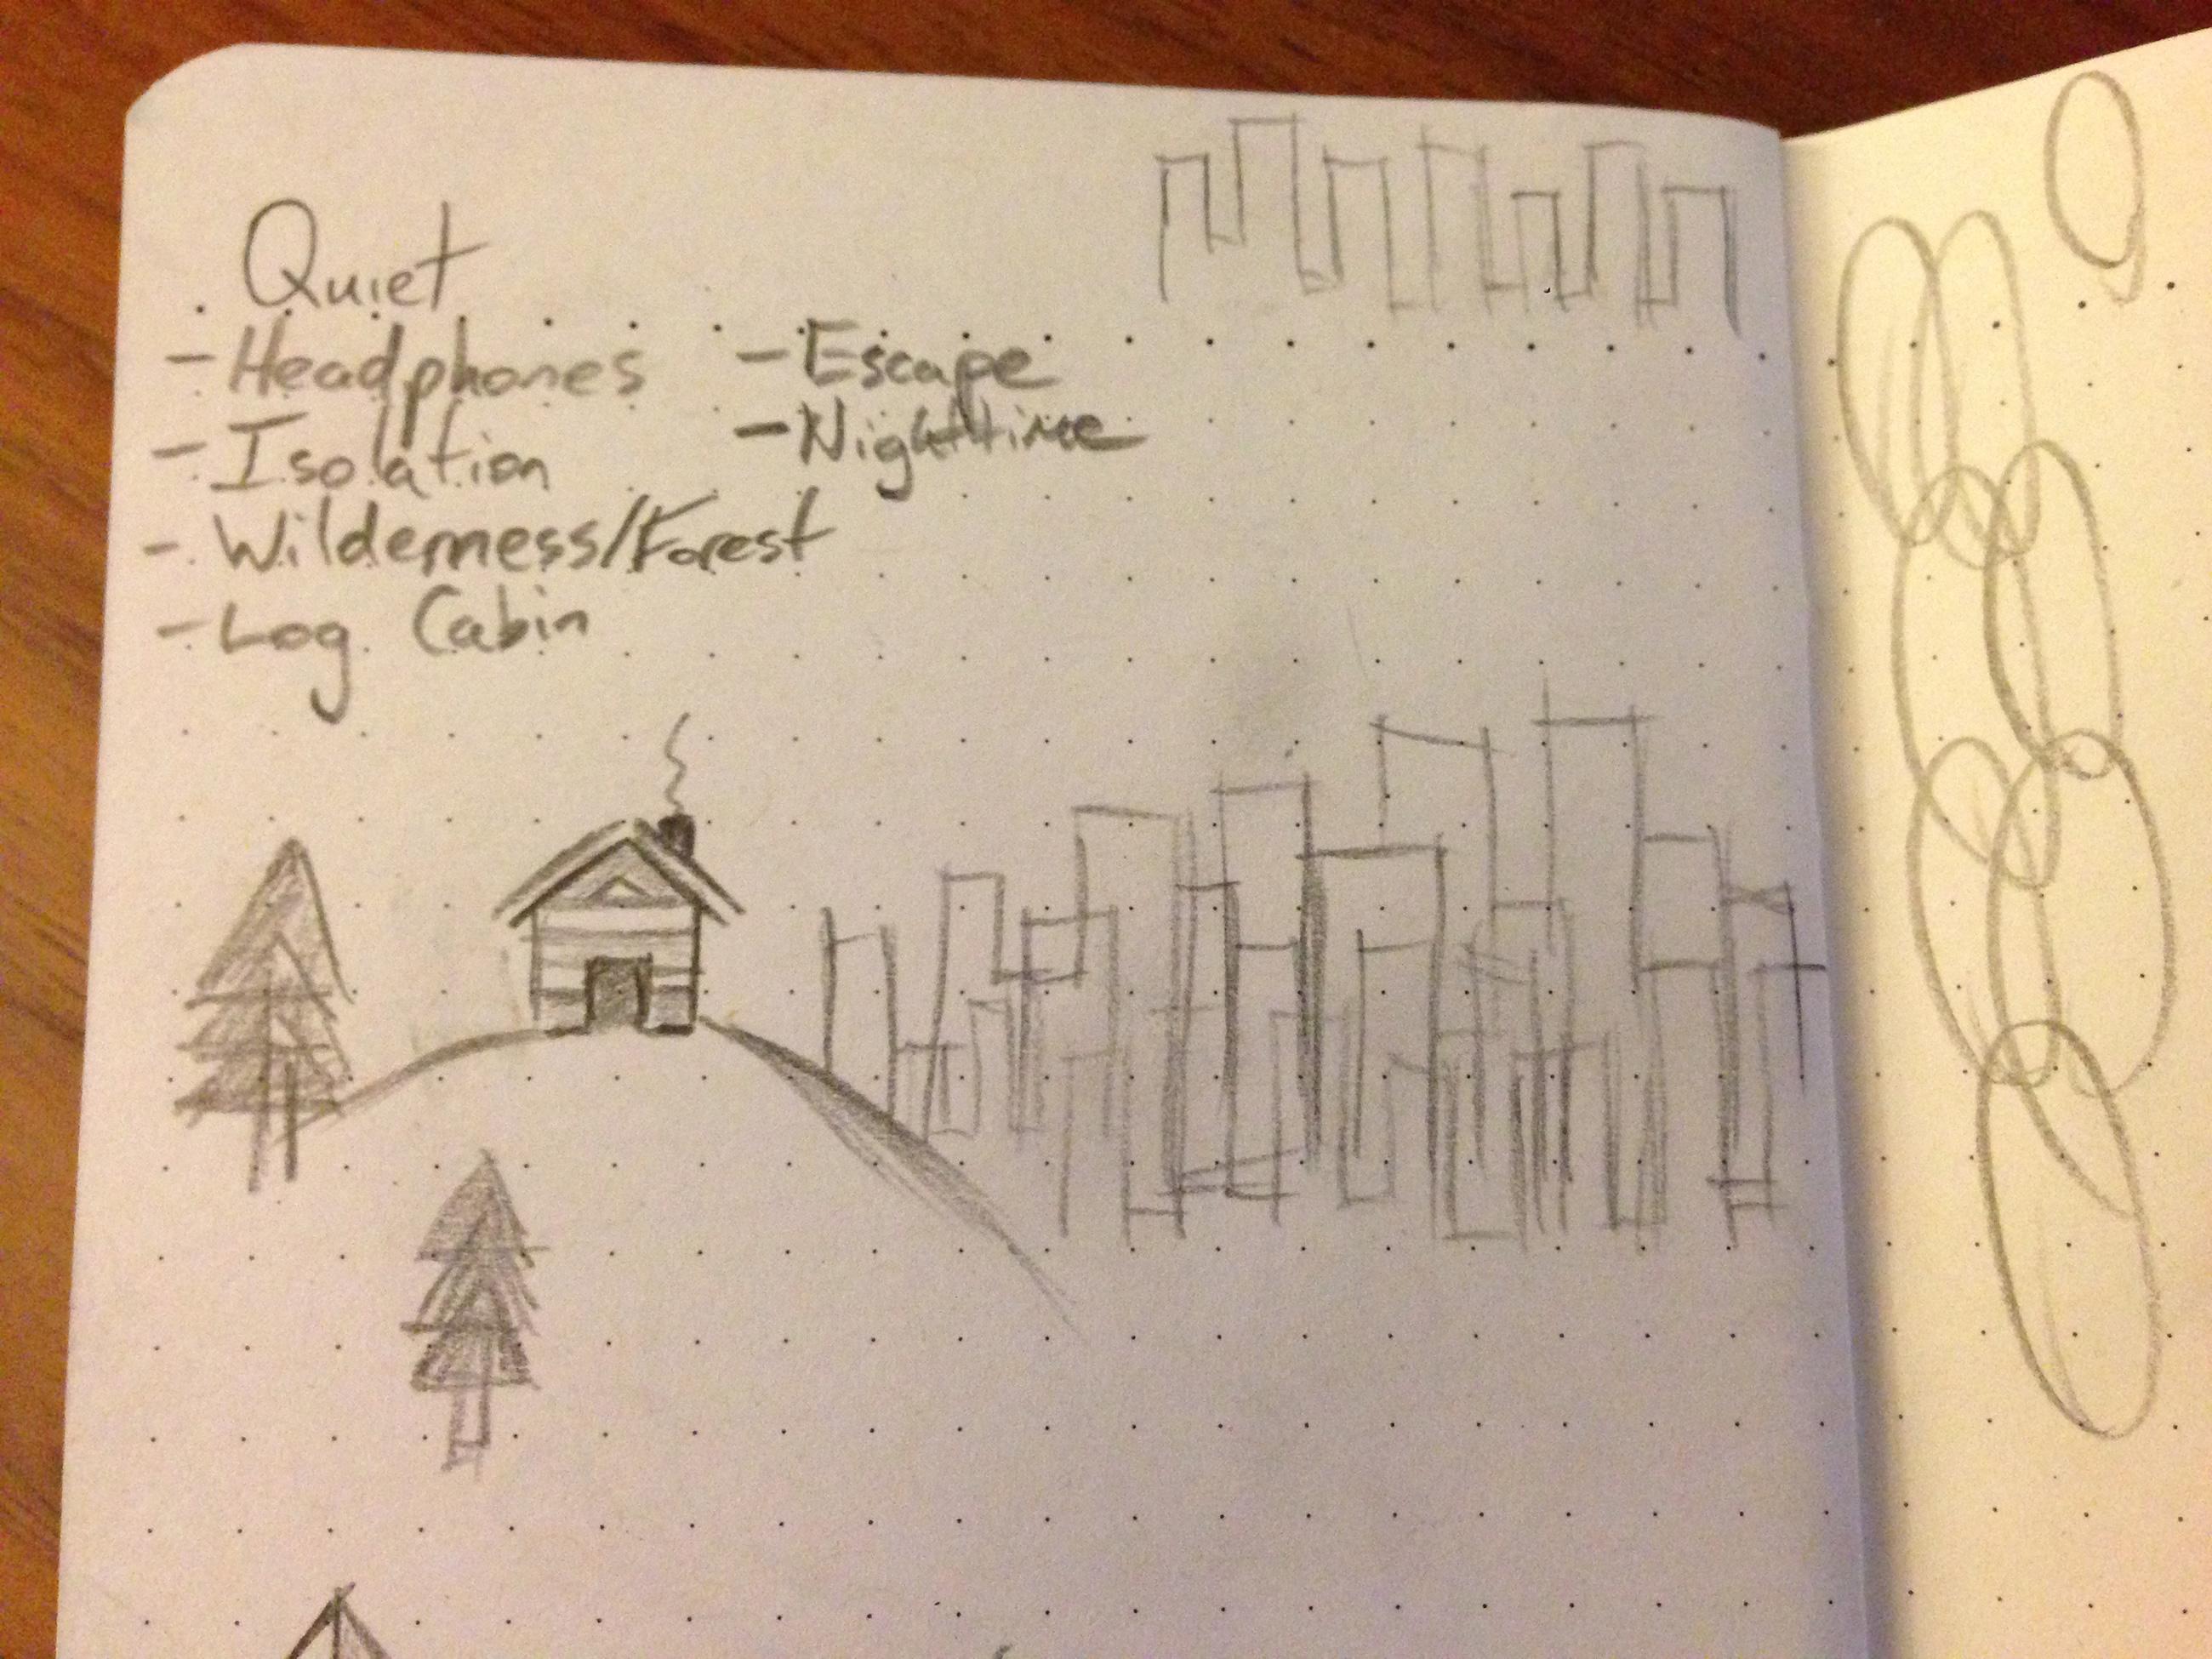 Quiet
- Headphones
- Isolation
- Wilderness/Forest
- Log Cabin
- Escape
- Nighttime